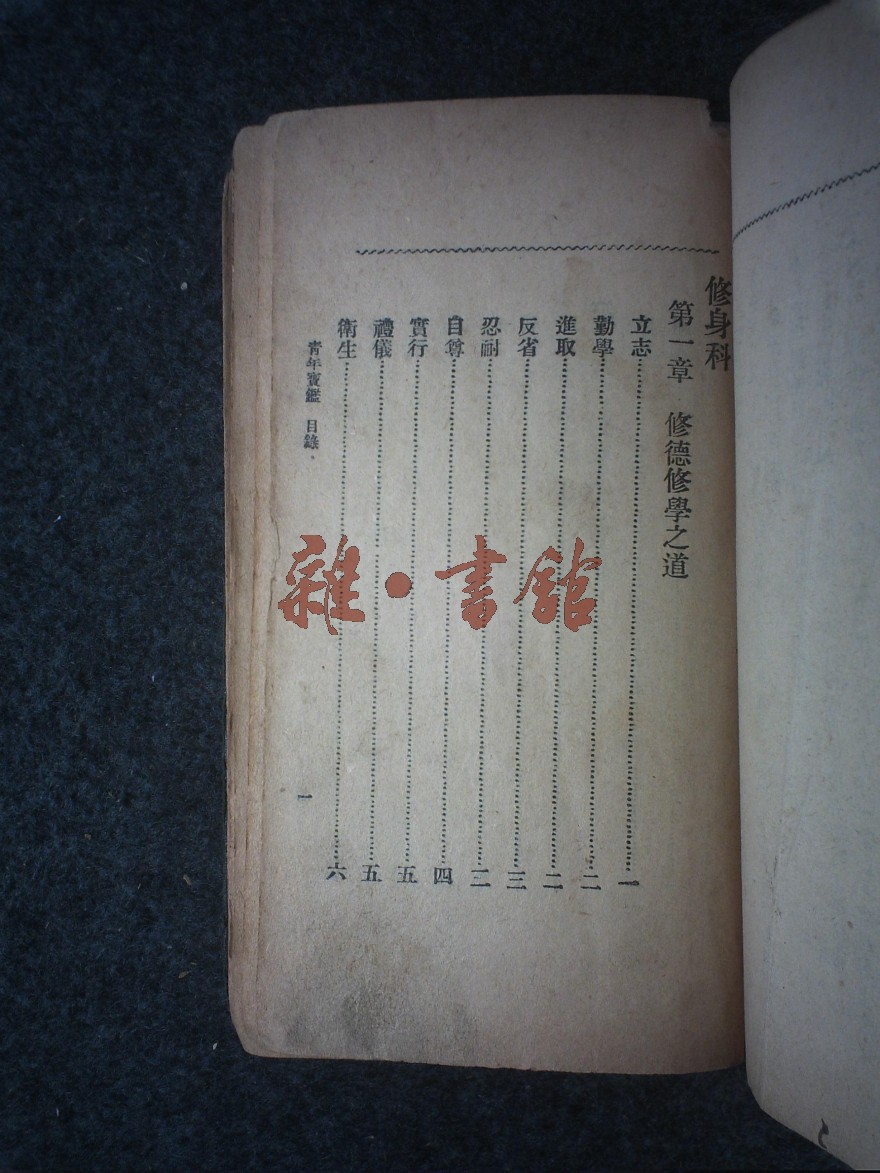 修身科
第一章 修德修學之道
立志 一
勤學 二
進取 二
反省 三
忍耐 三
自尊 四
實行 五
禮儀 五
衛生 六
青年寶鑑 目錄。 一
雜·書館